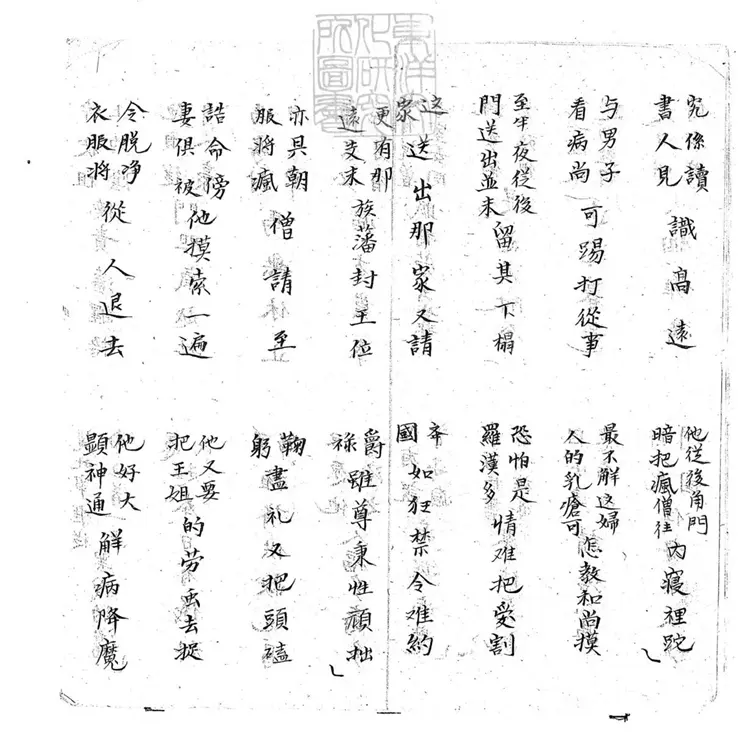 究係讀書人見識高遠
他從後角門暗把瘋僧往內寢裡跎
与男子看病尚可踢打從事
最不解这婦人的乳瘡可怎教和尚摸
至半夜從後門送出並未留其下榻
恐怕是羅漢多情难把愛割
这家送出那家又請
本國如狂禁令难約
更有那遠支末族藩封王位
爵祿雖尊秉性頑拙
亦具朝服將瘋僧請至
鞠躬盡礼又把頭磕
誥命傍妻俱被他摸索一遍
他又要把王姐的劳虫去捉
令脱净衣服將從人退去
他好大顯神通解病降魔
東洋文化研究所圖書